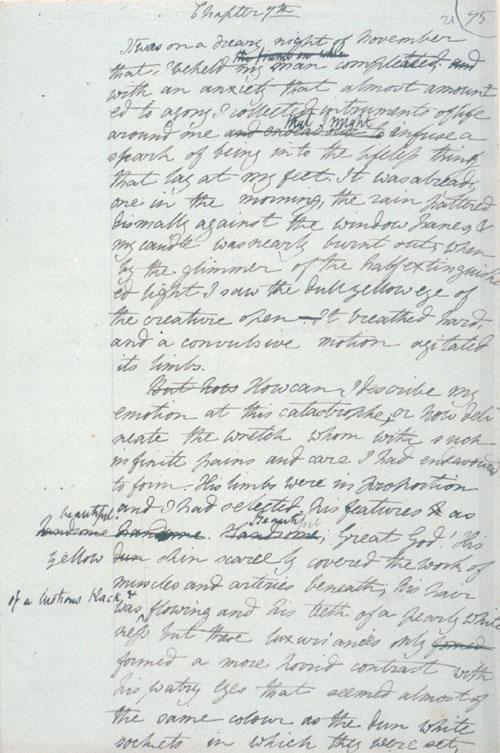 Chapter 7th
21 95
It was on a dreary night of November
that I beheld the frame on whic my man completed, and
with an anxiety that almost amount
ed to agony, I collected instruments of life
around me and endeavour to that I might infuse a
spark of being into the lifeless thing
that lay at my feet. It was already
one in the morning, the rain pattered
dismally against the window panes, &
my candle was nearly burnt out, when
by the glimmer of the half extinguish
ed light I saw the dull yellow eye of
the creature open – It breathed hard,
and a convulsive motion agitated
its limbs.
But how How can I describe my
emotion at this catastrophe, or how deli
neate the wretch whom with such
infinite pains and care I had endeavoured
to form. His limbs were in proportion
and I had selected his features as
beautiful.
handsome handsome. Handsome, Beautiful, Great God! His
yellow dun skin scarcely covered the work of
muscles and arteries beneath, his hair
of a lustrous black, &
was flowing and his teeth of a pearly white
ness but these luxuriances only formed
formed a more horrid contrast with
his watry eyes that seemed almost of
the same colour as the dun white
sockets in which they were set